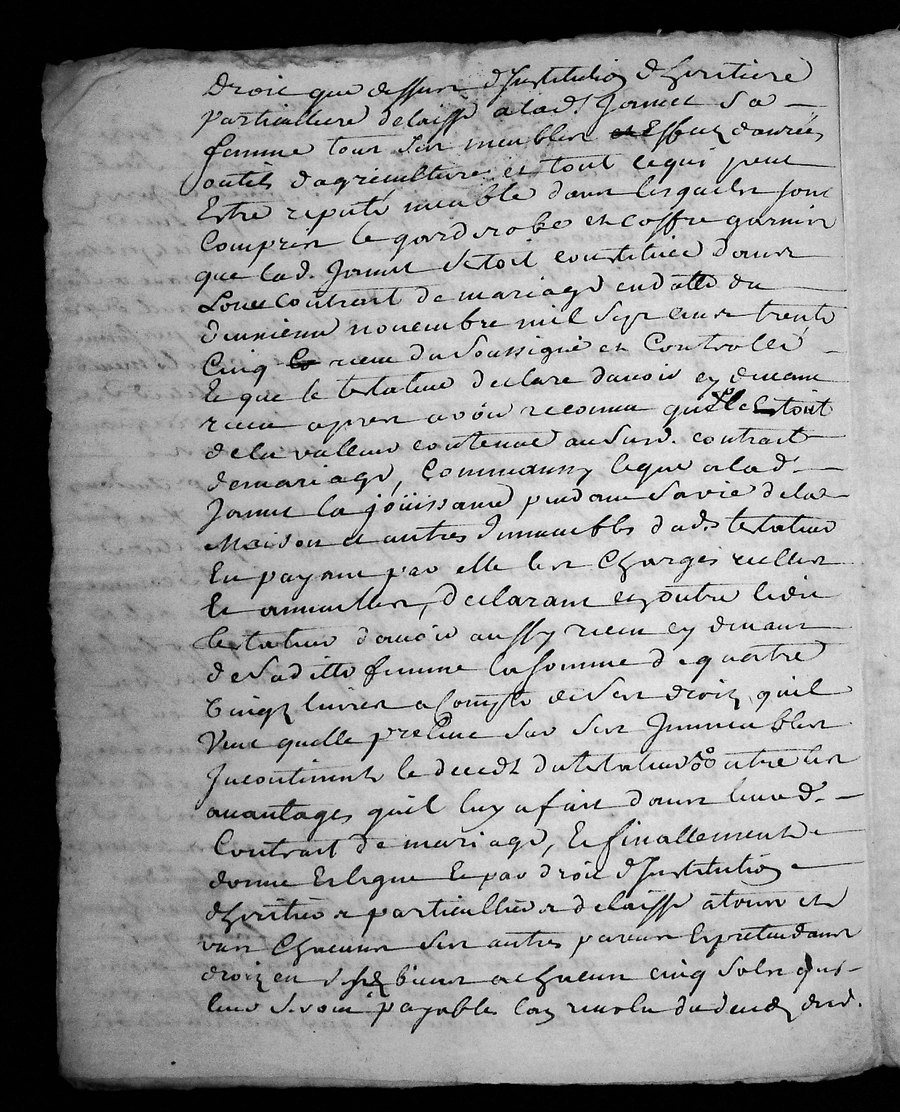 Droit que dessus d'Institution d'heritiere
particulliere delaisse a lad. Jonnet sa
femme tous ses meubles et Effetz danrées
outils d'agriculture et tout ce qui peut
Estre reputé meuble dans lesquels sont
Compris le gardrobe et coffre garnis
que lad. Jonnet s'etoit constituée dans
Leur Contrat de mariage en datte du
deuxieme novembre mil sept cens trente
Cinq receu du soussigné et Controllé
Et que le testateur declare d'avoir cy devant
receu apres avoir reconnu qu'il estoit
de la valleur contenue au susd. contrait
de mariage, Comm aussy legue a lad.
Jonnet la joüissance pendant sa vie de la
Maison et autres Immeubles dud. testateur
En payant par elle les Charges reelles
Et annuelles, declarant en outre ledit
testateur d'avoir aussy receu cy devant
de Saditte femme la somme de quatre
vingt livres a Compte de ses droitz qu'il
Veut quelle preleve sur ses Immeubles
Incontinent le decedz du testateur outre les
avantages quil luy a fait dans leurd.
Contrait de mariage, Et finallement
donne Et legue Et par droit d'Institution
d'heritiers particulliers delaisse a tous et
uns Chacuns ses autres parens Et pretendans
droitz en biens a chacun cinq sols qui
leur seront payables l'an revolu du decedz dud.